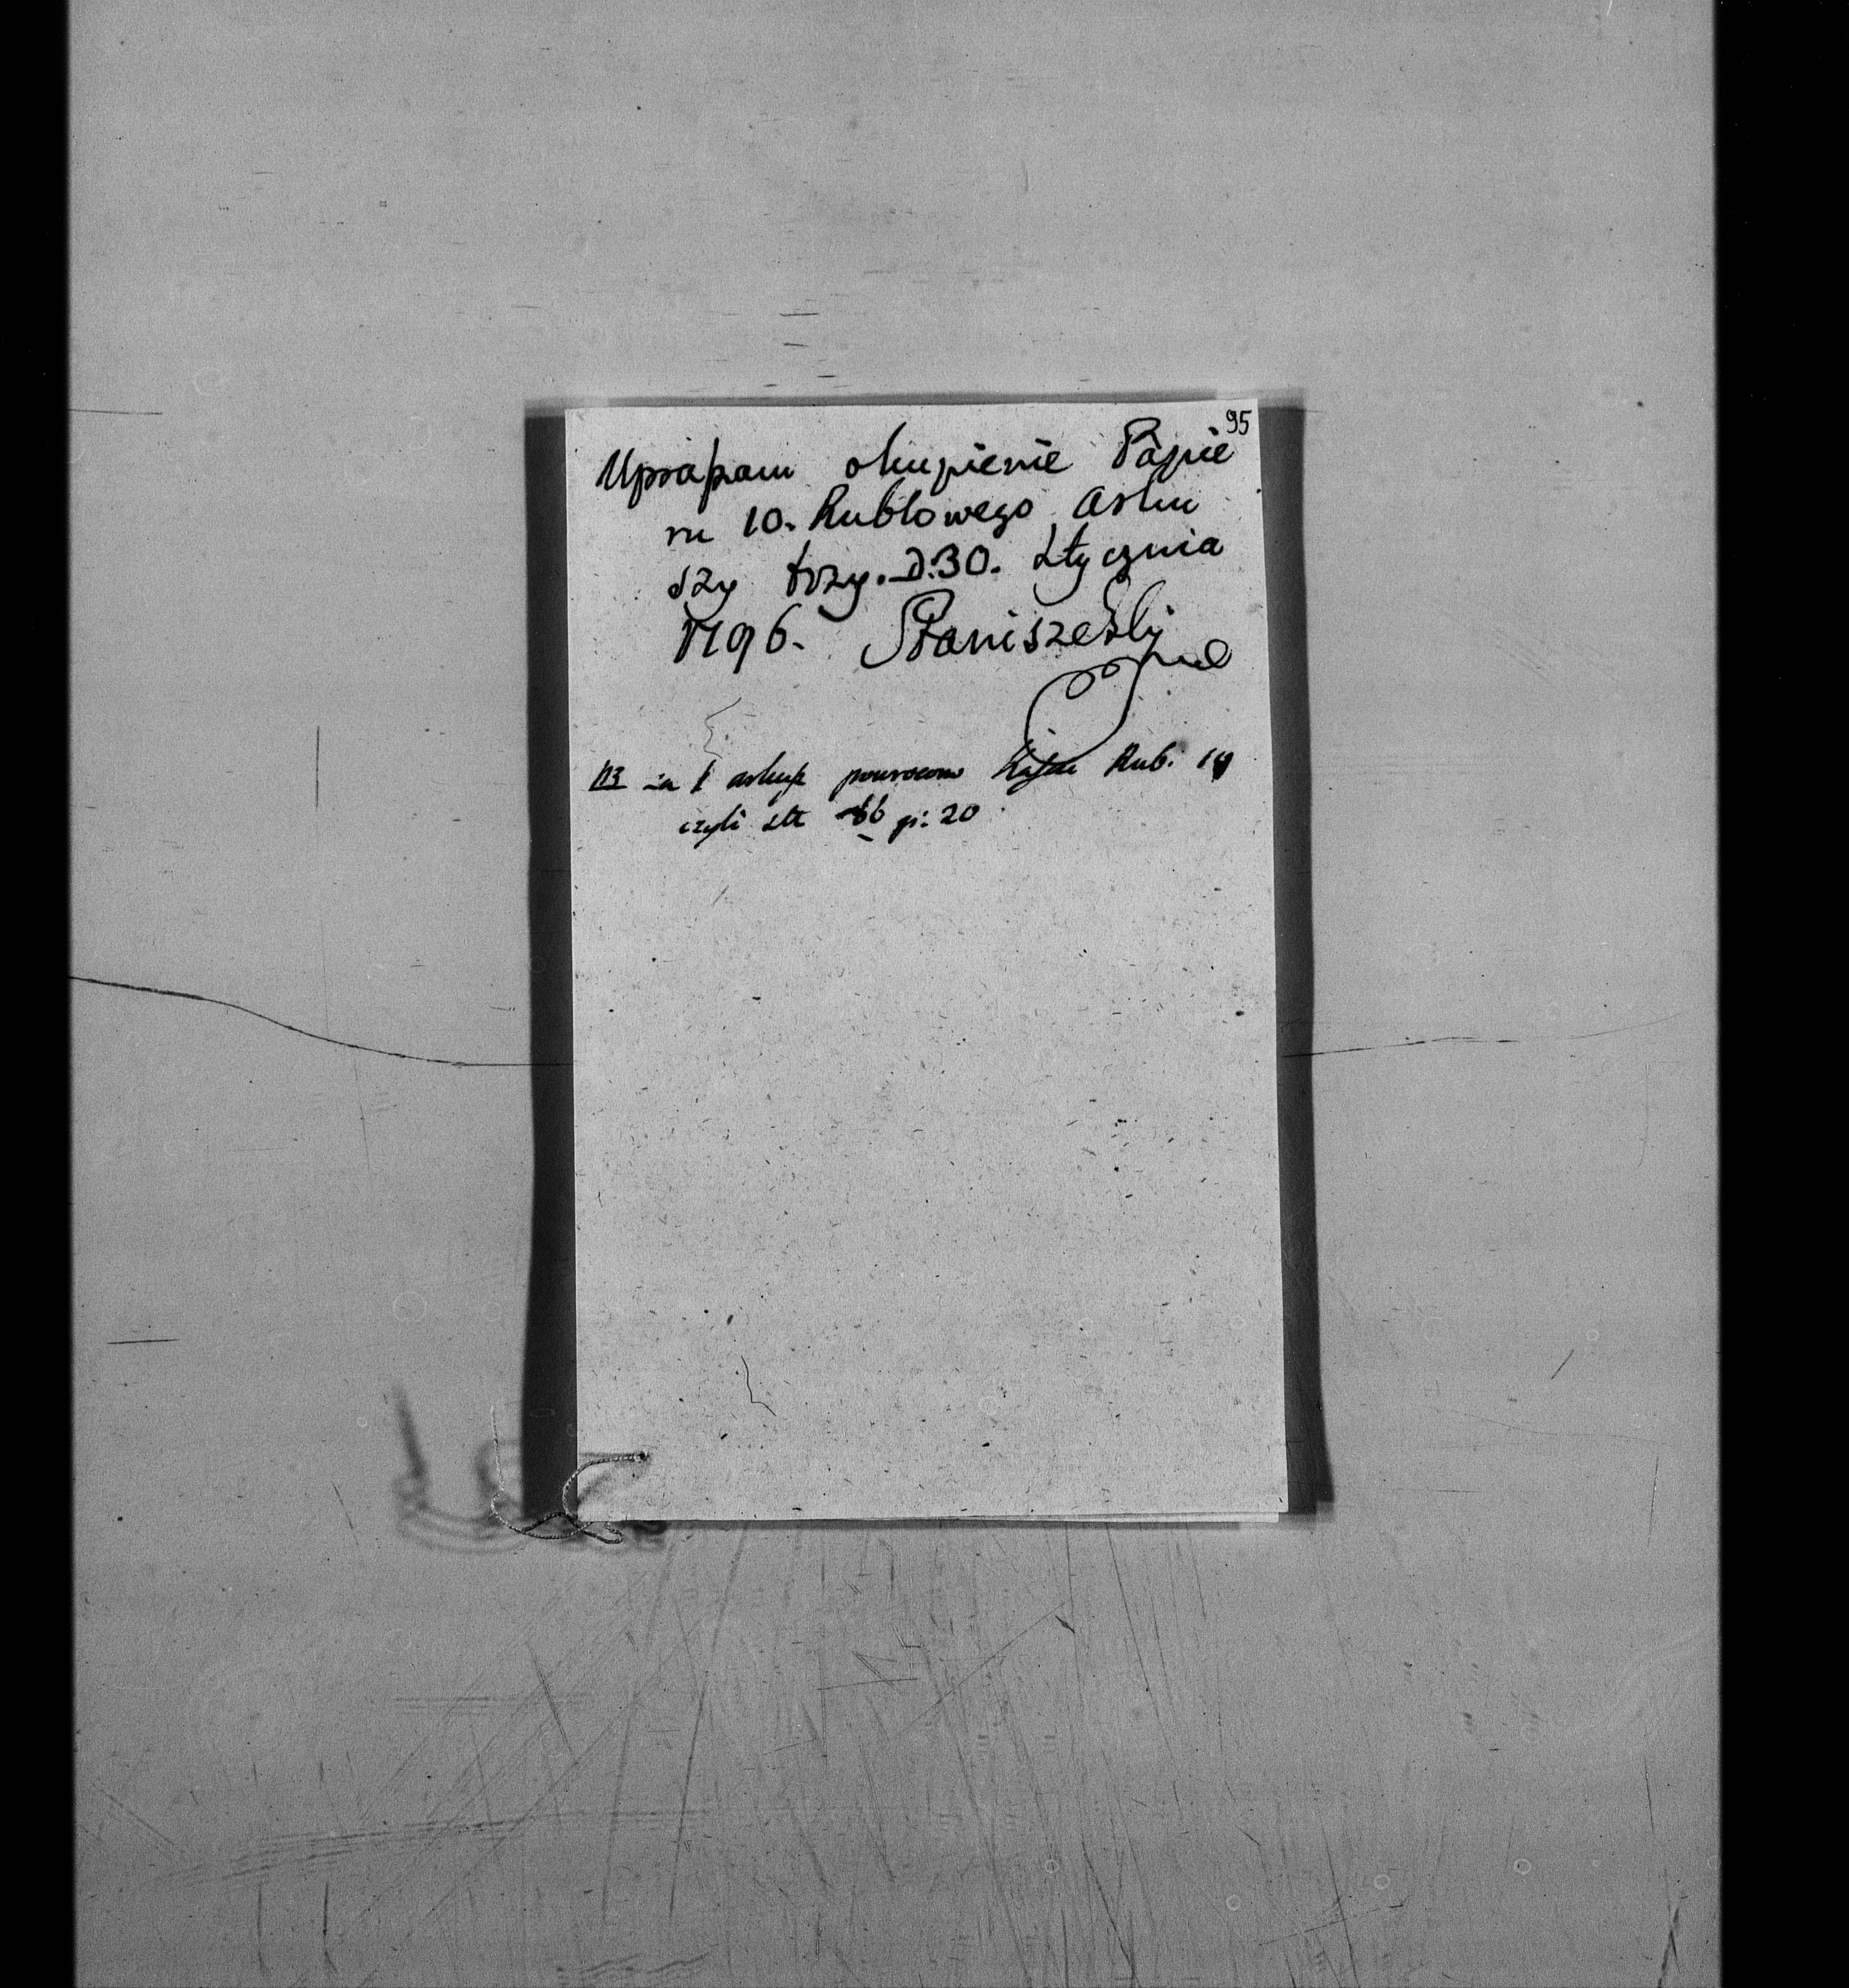 95
Upraszam okupienie Papie
ru 10. Rublowego arku
szy trzy. D.30. Stycznia
1796. Staniszewski
NB za 1 arkusz powrócono Rub. 10
czyli złt 66 gr: 20